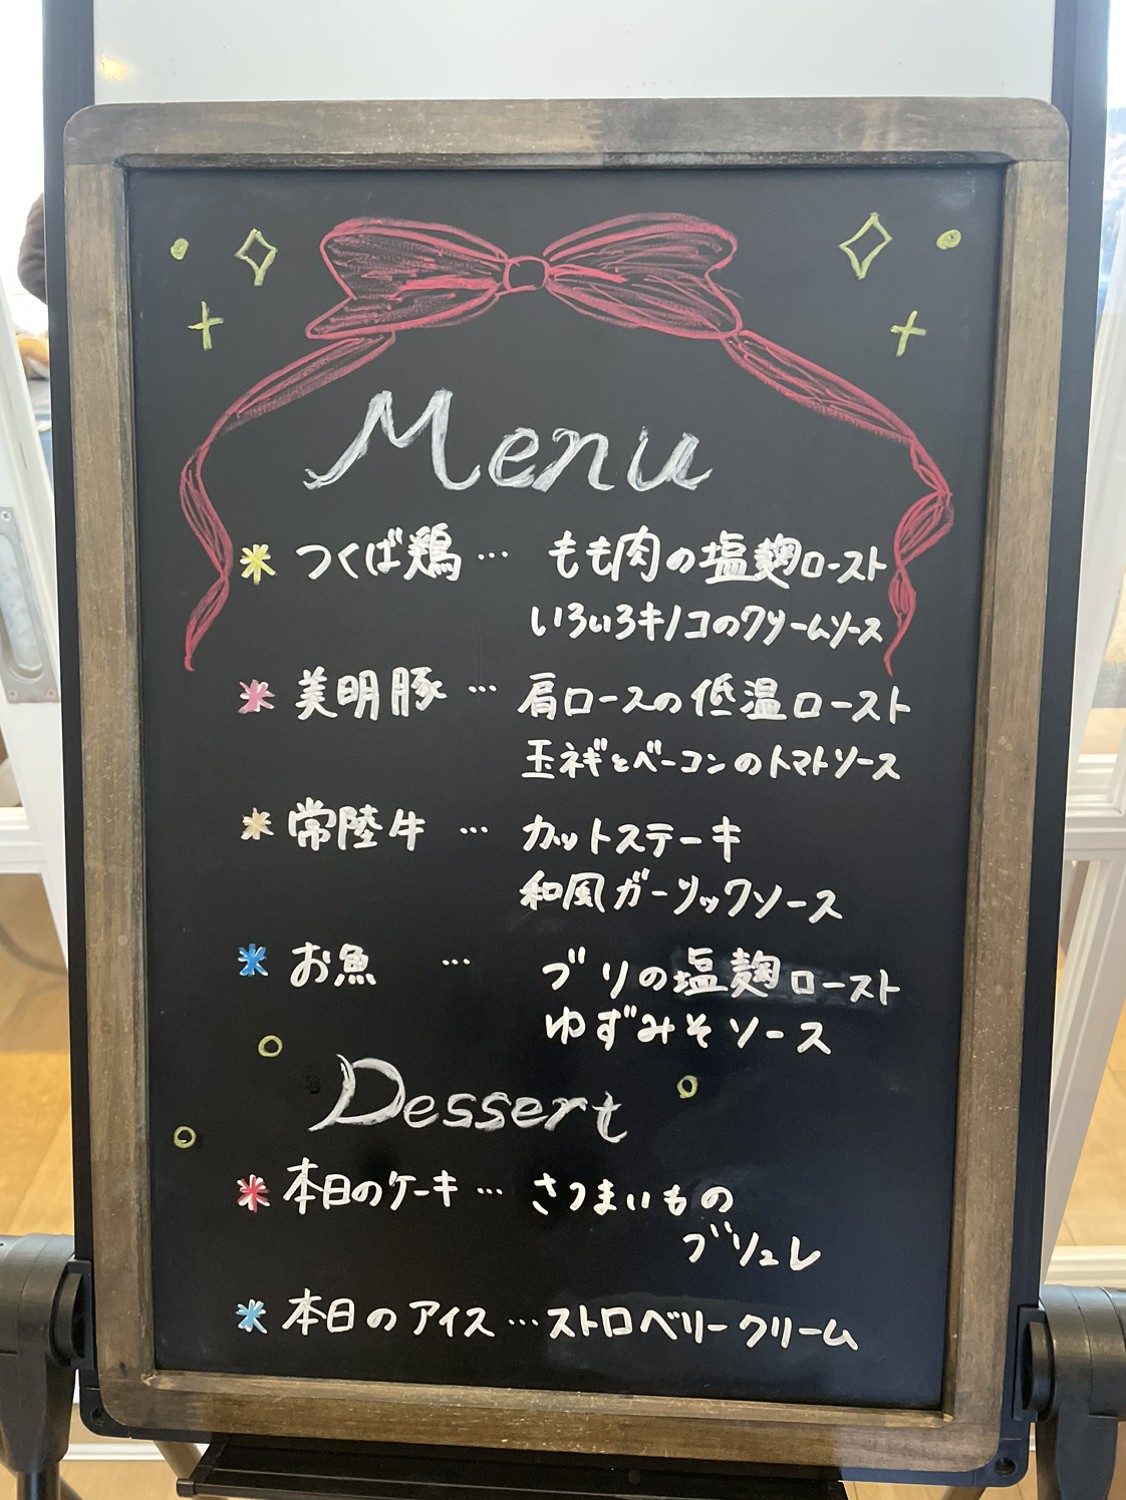 Menu
* つくば鶏 … もも肉の塩麹ロースト
いろいろキノコのクリームソース
* 美明豚 … 肩ロースの低温ロースト
玉ネギとベーコンのトマトソース
* 常陸牛 … カットステーキ
和風ガーリックソース
* お魚 … ブリの塩麹ロースト
ゆずみそソース
Dessert
* 本日のケーキ … さつまいもの
ブリュレ
* 本日のアイス … ストロベリークリーム